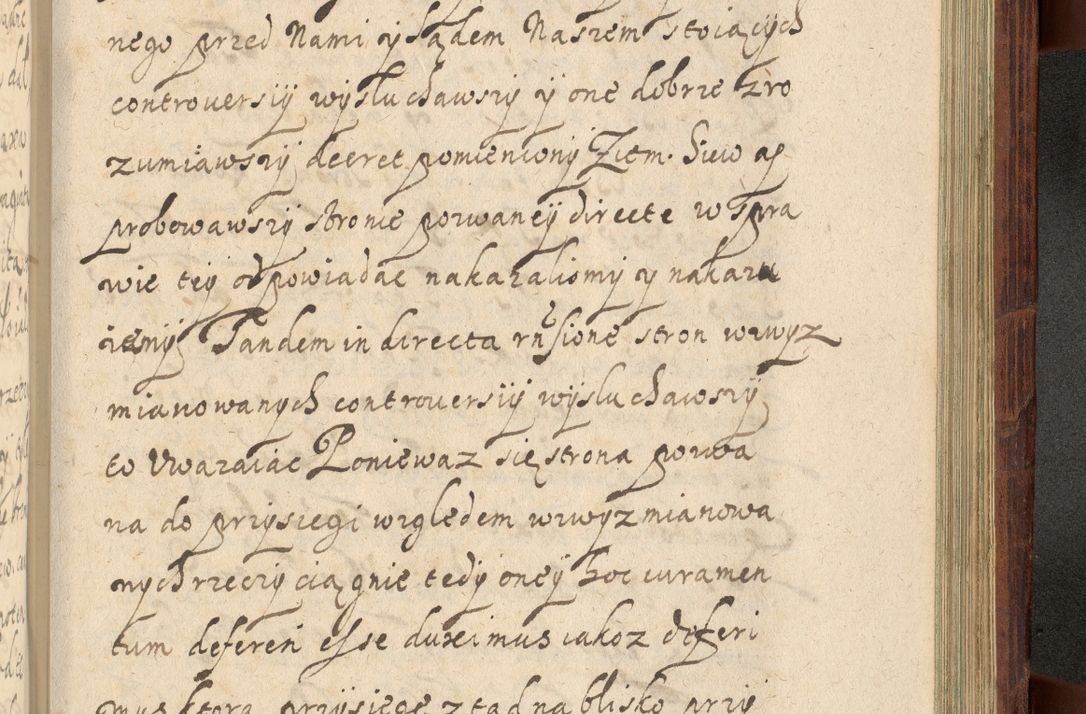 nego przed Nami y sądem Naszem stoiących
controuersiÿ wÿsłuchawszÿ ÿ one dobrze zro
zumiawszÿ decret pomienionÿ Ziem. Siew ap
probowawszÿ stronie pozwaneÿ directe w spra
wie teÿ odpowiadac nakazaliomÿ ÿ nakazu
iemÿ Tandem in directa rńsione stron wzwÿz
mianowanych controuersiÿ wÿsłuchawszÿ
to Uwazaiac Poniewaz się strona pozwa
na do przÿsiegi względem wzwÿzmianowa
nÿch rzeczÿ ciągnie tedÿ oneÿ hoc iuramen
tum deferen esse duximus iakoz deferi
mus ktora przÿsiege z tąd na blisko przÿ